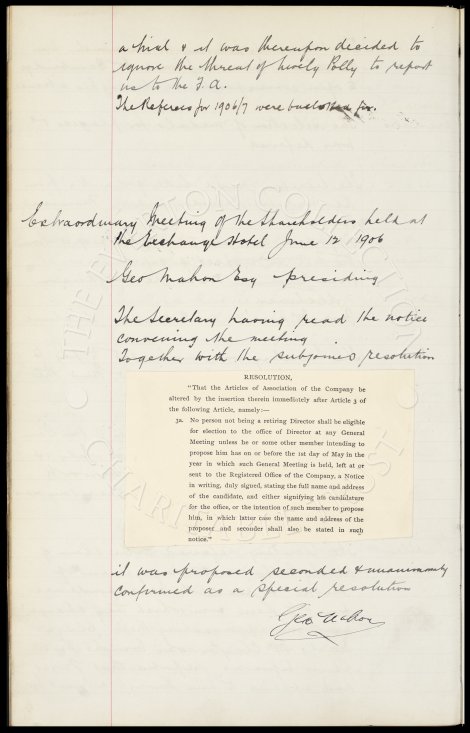 a trial & it was thereupon decided to
ignore the threat of Lively Polly to report
us to the F.A.
The Referees for 1906/7 were balloted for.
Extraordinary Meeting of the Shareholders held at
the Exchange Hotel June 12 1906
Geo Mahon Esq presiding
The Secretary having read the notice
convening the meeting
Together with the subjoined resolution
RESOLUTION.
"That the Articles of Association of the Company be
altered by the insertion therein immediately after Article 3 of
the following Article, namely:—
3a. No person not being a retiring Director shall be eligible
for election to the office of Director at any General
Meeting unless he or some other member intending to
propose him has on or before the 1st day of May in the
year in which such General Meeting is held, left at or
sent to the Registered Office of the Company, a Notice
in writing, duly signed, stating the full name and address
of the candidate, and either signifying his candidature
for the office, or the intention of such member to propose
him, in which latter case the name and address of the
proposer and seconder shall also be stated in such
notice."
it was proposed seconded & unanimously
confirmed as a special resolution
Geo Mahon
THE EVERTON COLLECTION
CHARITABLE TRUST